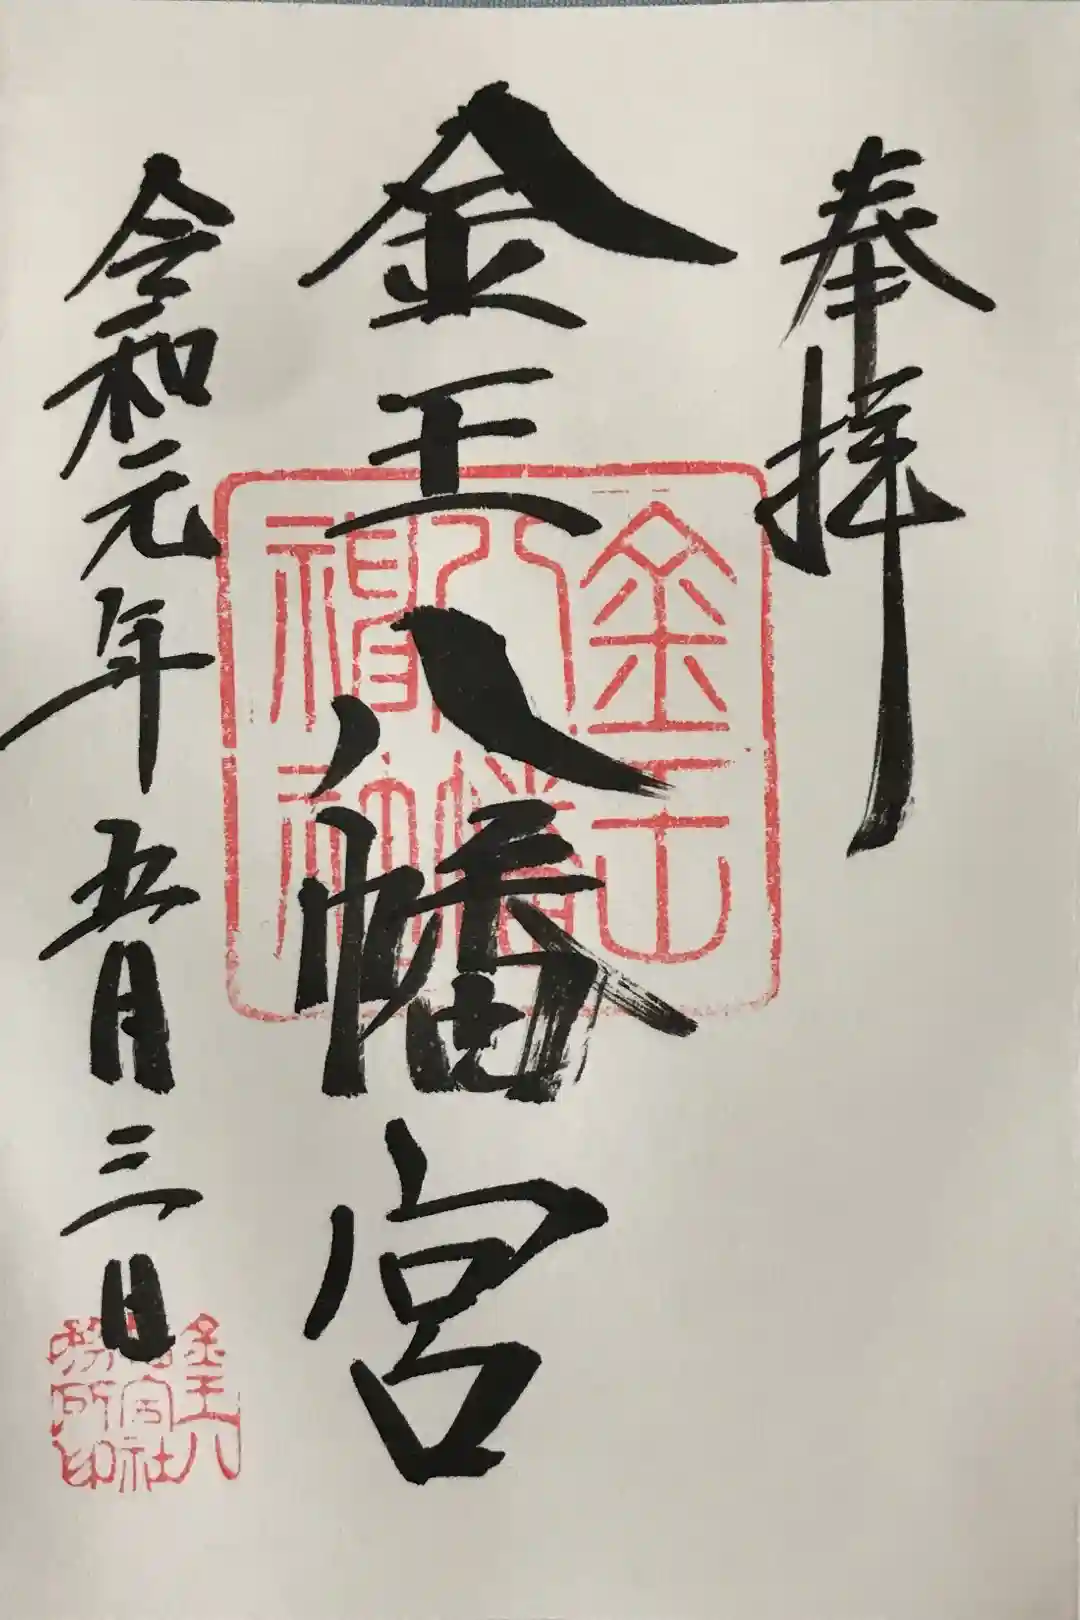 奉拝
金王八幡宮
令和元年五月三日
金王
八幡
神社
金王八
幡宮社
務所印